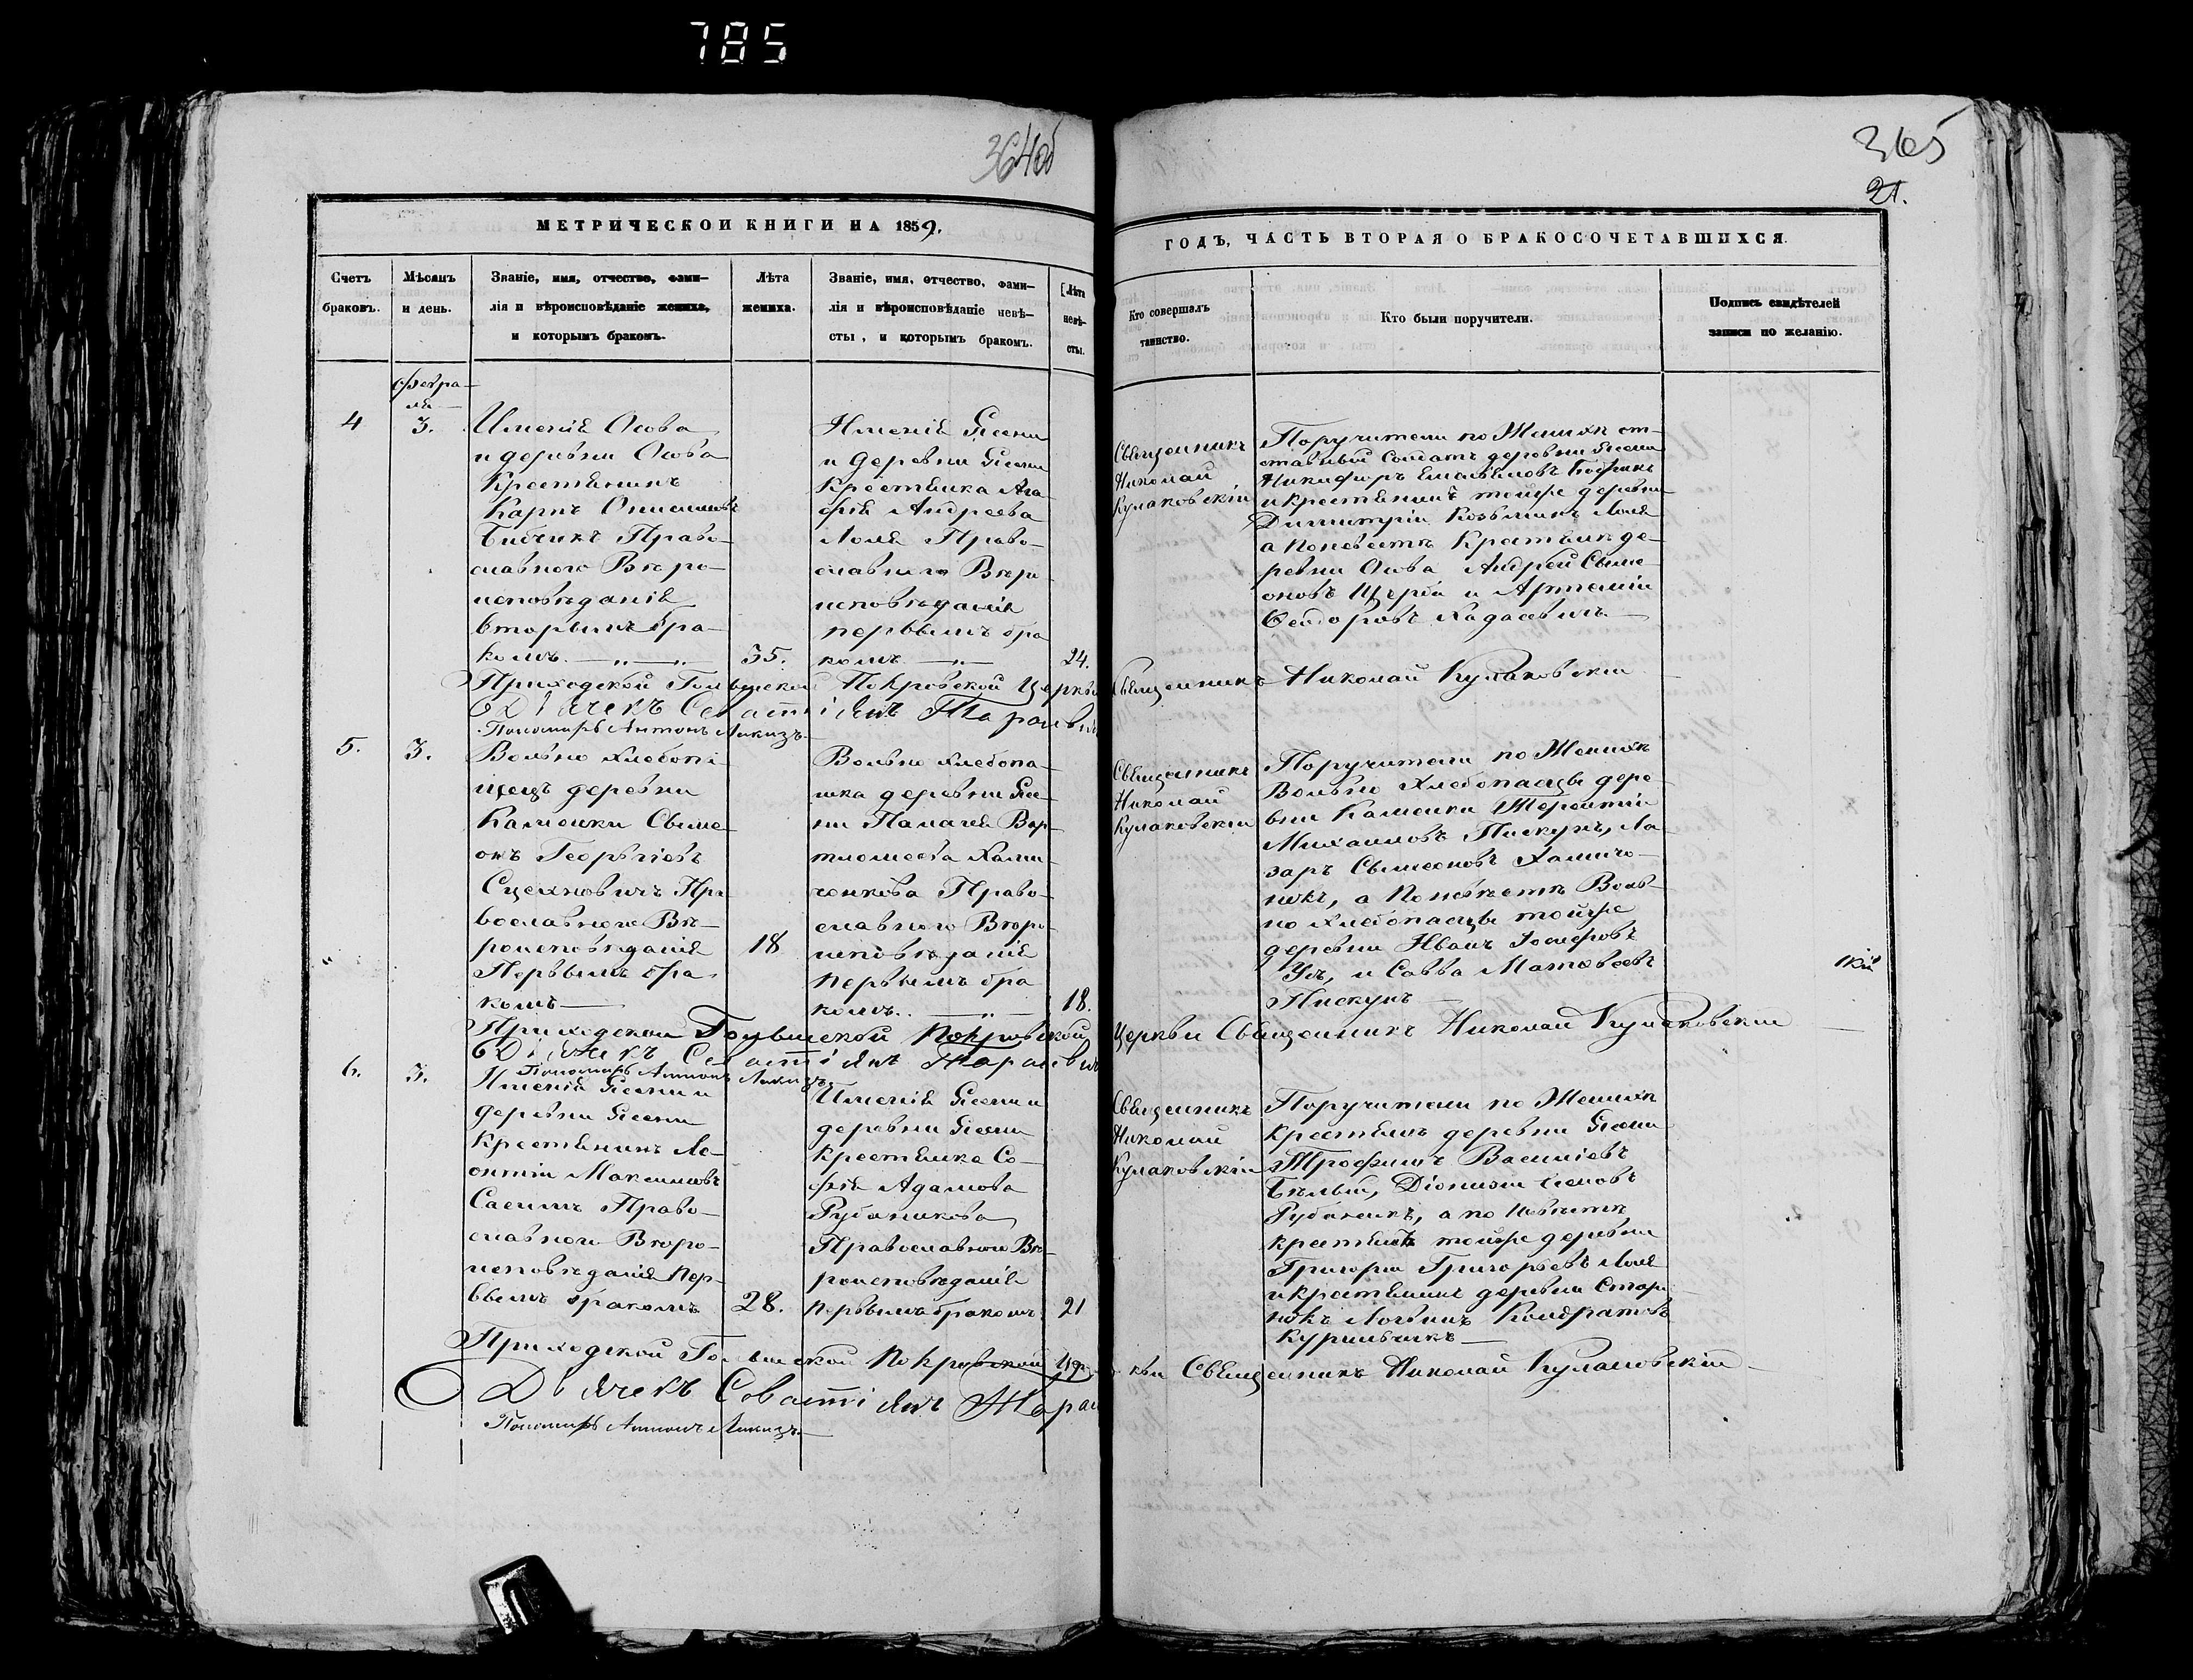 785
364об
365
21.
МЕТРИЧЕСКОЙ КНИГИ НА 1859.
ГОДЪ, ЧАСТЬ ВТОРАЯ О БРАКОСОЧЕТАВШИХСЯ.
Счетъ
браковъ.
Мѣсяцъ
и день.
Званіе, имя, отчество, фами-
лія и вѣроисповѣданіе жениха,
и которымъ бракомъ.
Лѣта
жениха.
Званіе, имя, отчество, фами-
лія и вѣроисповѣданіе невѣ-
сты, и которымъ бракомъ.
Лѣта
невѣ-
сты.
Кто совершалъ
таинство.
Кто были поручители.
Подпись свидѣтелей
записи по желанію.
Февра-
ля
4
3.
Именія Осова
и деревни Осова
Крестьянинъ
Карпъ
Право-
славного Вѣро-
исповѣданія
вторымъ бра-
комъ
35.
Именія Ясени
и деревни Ясени
Крестьянка Ага-
фія Андреева
Лоля Право-
славного Вѣро-
исповѣданія
первымъ бра
комъ
24.
Священникъ
Николай
Кулаковскій
Поручители по Женихѣ от-
ставный Солдатъ деревни Ясени
Никифоръ
и крестьянинъ тойже деревни
Димитрій Козьминъ Лоля
а по невѣстѣ Крестьяне де-
ревни Осова Андрей Сѵме-
оновъ и Артемій
Ѳеодоровъ Хадасевичъ
Приходской Голынской Покровской Церкви Священникъ Николай Кулаковскій
Дьячекъ Севастіянъ Жаравовичъ
Пономарь Антонъ
5.
3.
Вольно хлебопа
щецъ деревни
Каменки Сѵме
онъ Георгіевъ
Сцепновичъ Пра
вославного Вѣ-
роисповѣданія
Первымъ бра
комъ
18
Вольно хлебопа-
шка деревни Ясе-
ни Палагея Вар-
тломеева Хами-
ченкова Право-
славного Вѣро-
исповѣданія
первымъ бра
комъ
18.
Священникъ
Николай
Кулаковскій
Поручители по Женихѣ
Вольно хлебопасцы дере
вни Каменки Терентій
Михаиловъ Пискунъ, Ла-
заръ Сѵмеоновъ Хамиче-
нокъ, а По невѣстѣ Воль-
но хлебопасцы тойже
деревни Иванъ Іосифовъ
и Савва Матѳеевъ
Пискунъ
Приходской Голынской Покровской Церкви Священникъ Николай Кулаковскій
Дьячекъ Севастіянъ
Пономарь Антонъ
6.
3.
Именія Ясени и
деревни Ясени
Крестьянинъ Ле-
онтій Максимовъ
Саенъ Право-
славного Вѣро-
исповѣданія пер-
вымъ бракомъ
28.
Именія Ясени и
деревни Ясени
Крестьянка Со-
фія Адамова
Рубаникова
Православного Вѣ-
роисповѣданія
первымъ бракомъ
21
Священникъ
Николай
Кулаковскій
Поручители по Женихѣ
крестьяне деревни Ясени
Трофимъ Василіевъ
Бѣлый, Діонисій
Рубаникъ, а по Невѣстѣ
крестьяне тойже деревни
Григорій Григорьевъ Лоля
и крестьянинъ деревни Стари-
нокъ Логвинъ Кондратовъ
Курильчикъ
Приходской Голынской Покровской Церкви Священникъ Николай Кулаковскій
Дьячекъ Севастіянъ
Пономарь Антонъ